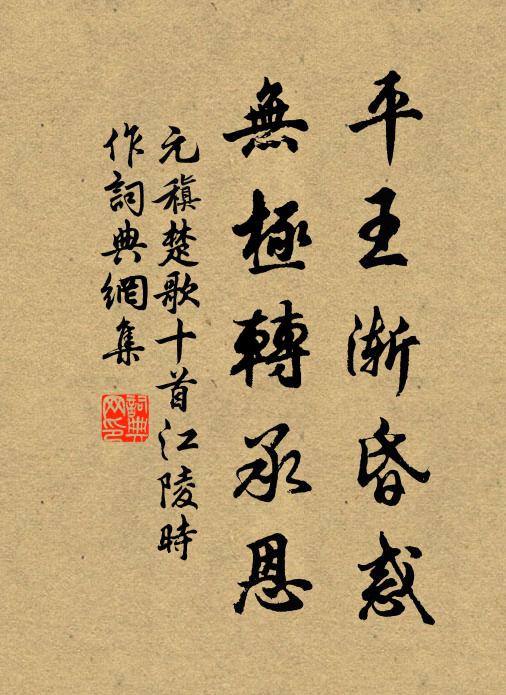 平王渐昏惑
無極轉承恩
元稹楚歌十首江陵時
作詞典網集
詞典网印